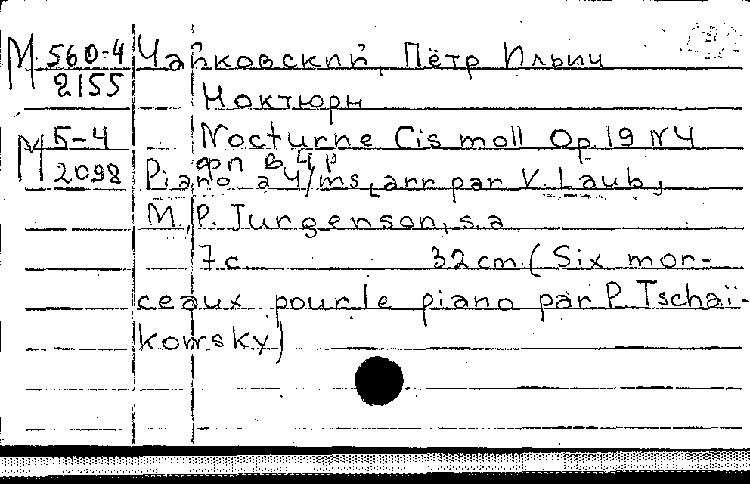 М 560-4 Чайковский, Пётр Ильич
2155
Ноктюрн
М Б-4 Nocturne Cis moll Op.19 N4
2098 фп в 4 р
Piano a 4/ms, arr par V. Laub,
M., P. Jurgenson, s.a
7c 32cm (Six mor-
ceaux pour le piano par P. Tschaï-
kowsky)